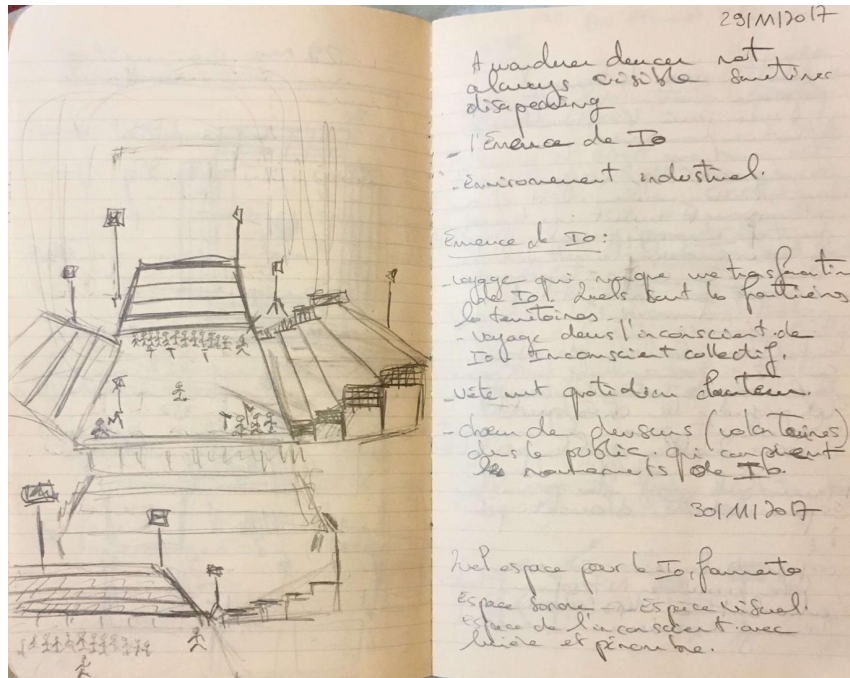 29/11/2017
A wanderer dancer not
always visible sometimes
disapearing
- l'Errance de Io
- Environement industriel.
Errance de Io :
- voyage qui marque une
de Io. Quels sont les frontières
les territoires -
- Voyage dans l'inconscient de
Io. Inconscient collectif.
- vêtement quotidien
- chœur de danseurs (volontaires)
dans le public. qui
les mouvements de Io.
30/11/2017
Quel espace pour le Io,
Espace sonore - Espace visuel.
Espace de l'inconscient avec
lumière et pénombre.